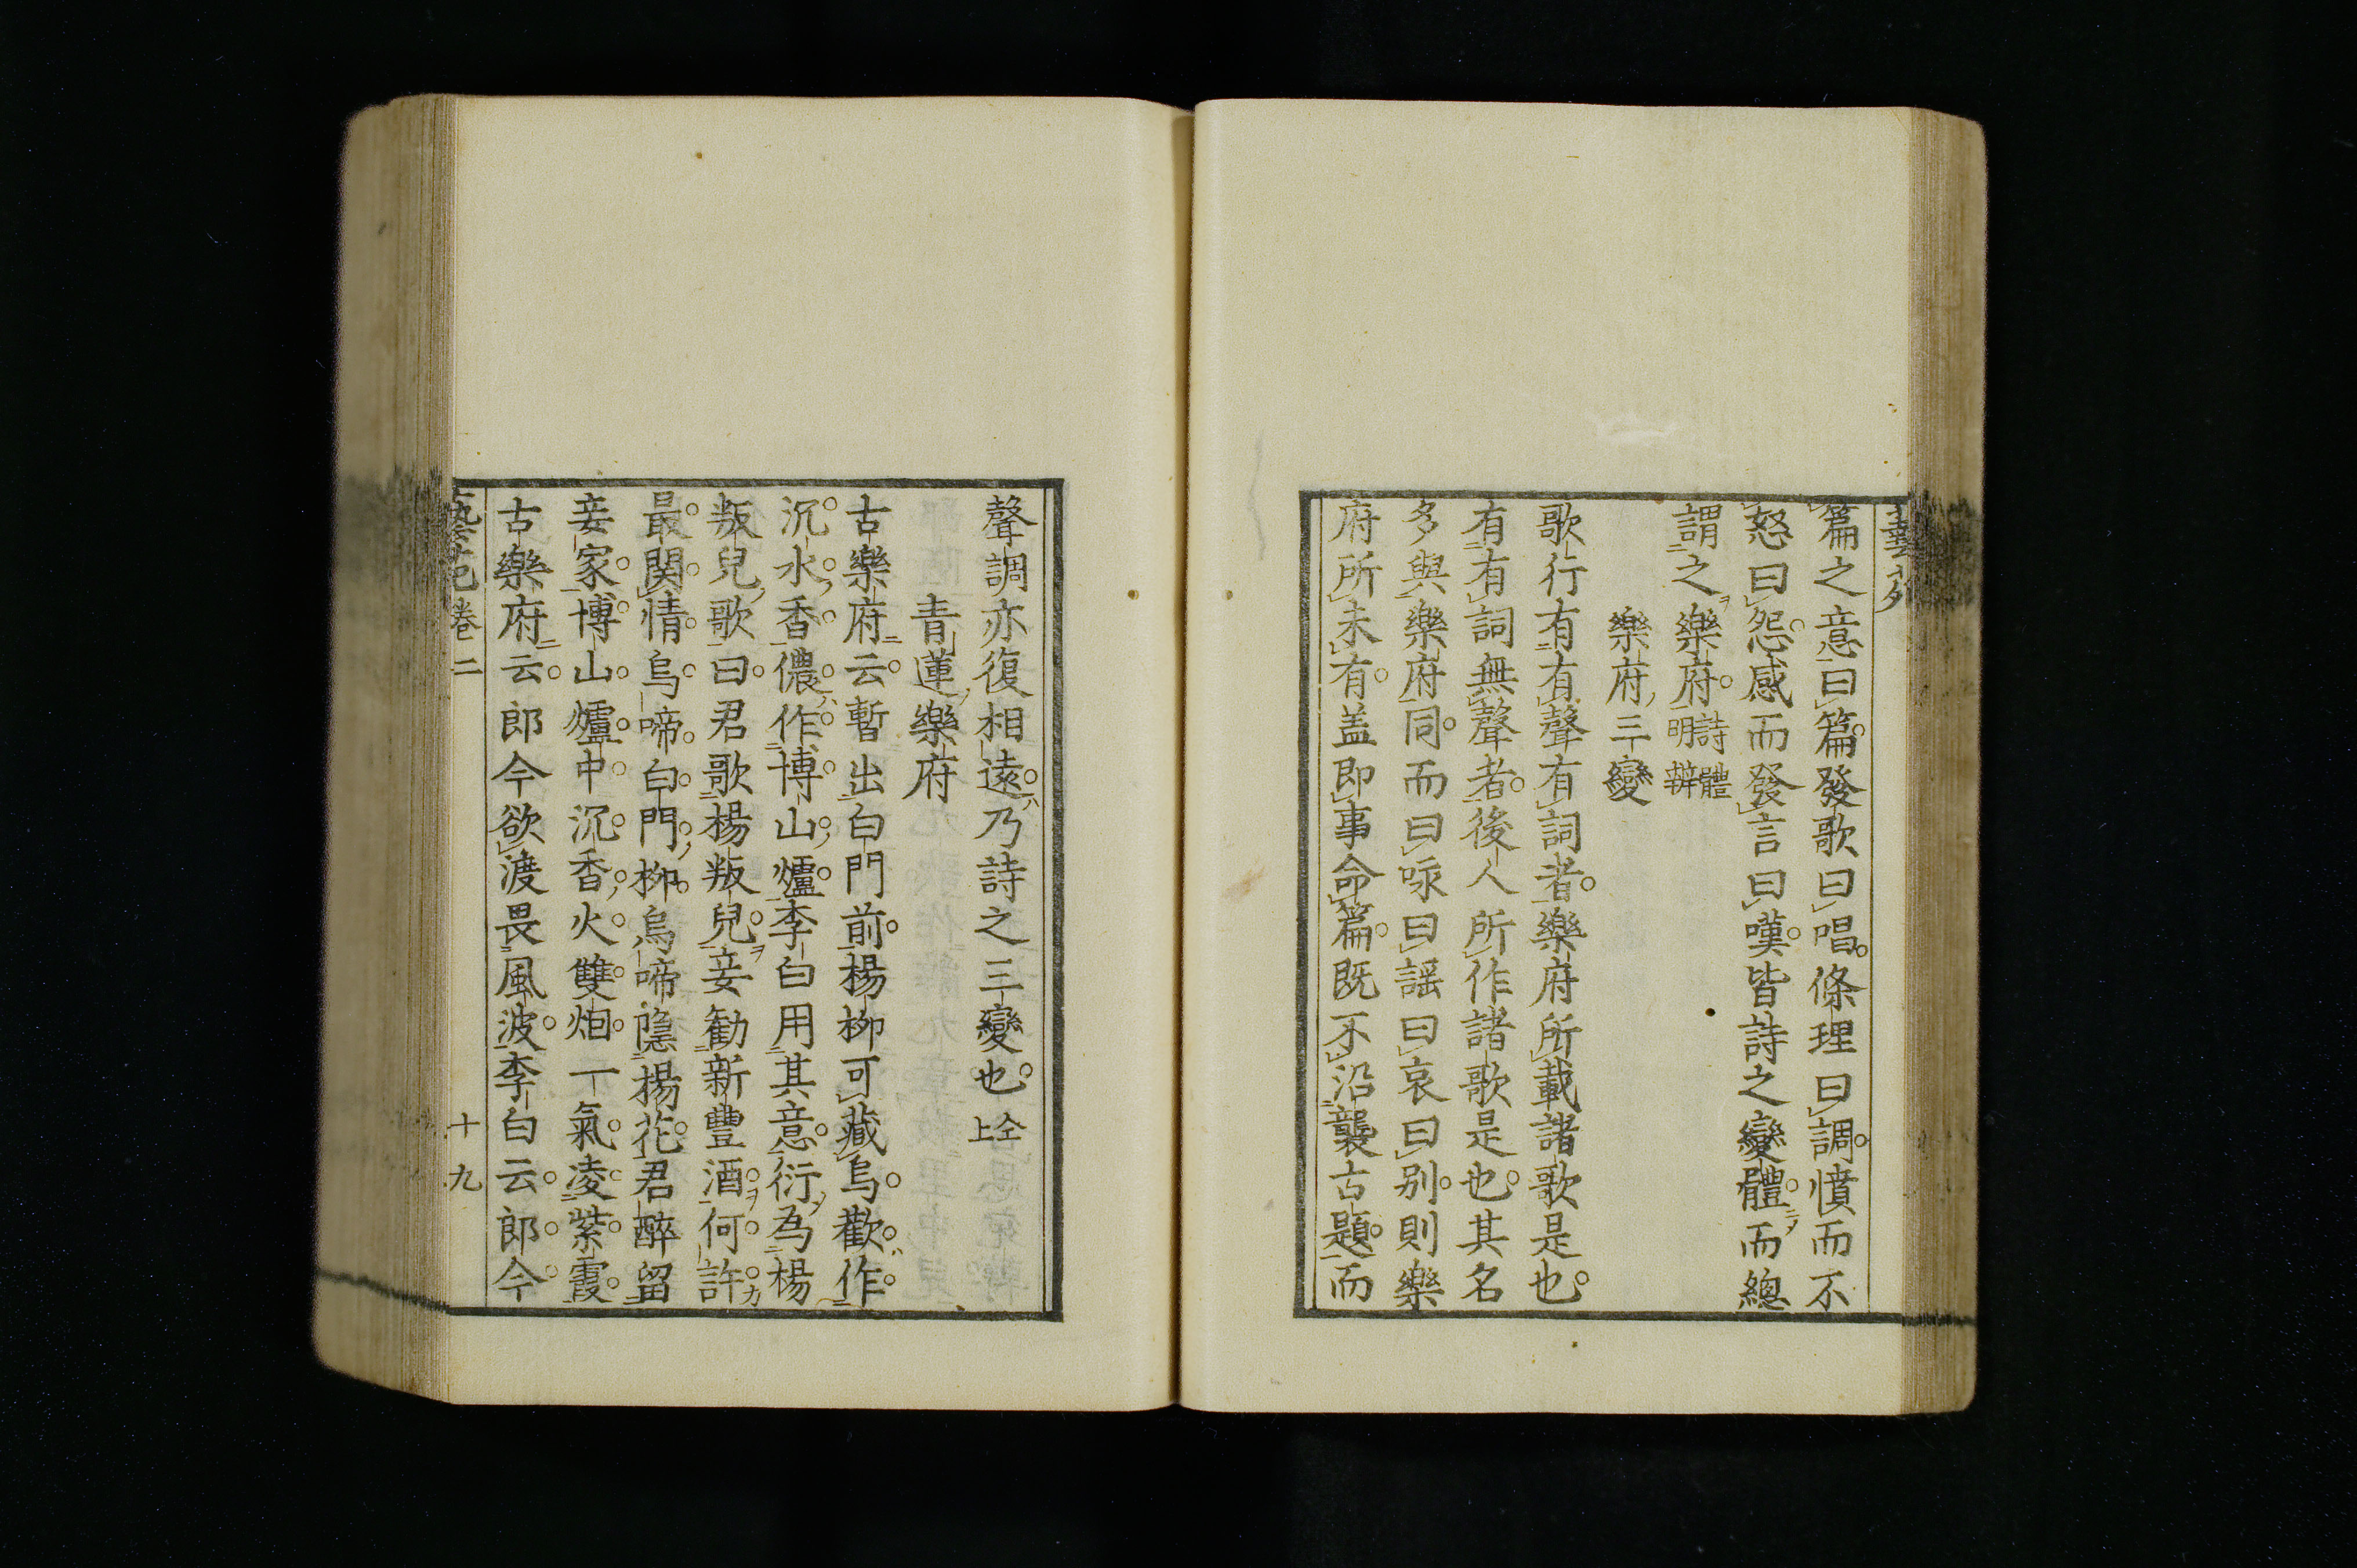 藝苑
篇之意曰篇發歌曰唱條理曰調憤而不
怒曰怨感而發言曰嘆皆詩之變體而總
謂之樂府詩體明辨
樂府三變
歌行有有聲有詞者樂府所載諸歌是也
有有詞無聲者後人所作諸歌是也其名
多與樂府同而曰咏曰謡曰哀曰别則樂
府所未有盖即事命篇既不沿襲古題而
聲調亦復相遠乃詩之三變也仝上
青蓮樂府
古樂府云暫出白門前楊柳可藏烏歡作
沉水香儂作博山爐李白用其意衍為楊
叛兒歌曰君歌楊叛兒妾勸新豐酒何許
最関情烏啼白門柳烏啼隱楊花君醉留
妾家博山爐中沉香火雙烟一氣凌紫霞
古樂府云郎今欲渡畏風波李白云郎今
藝苑卷二 十九